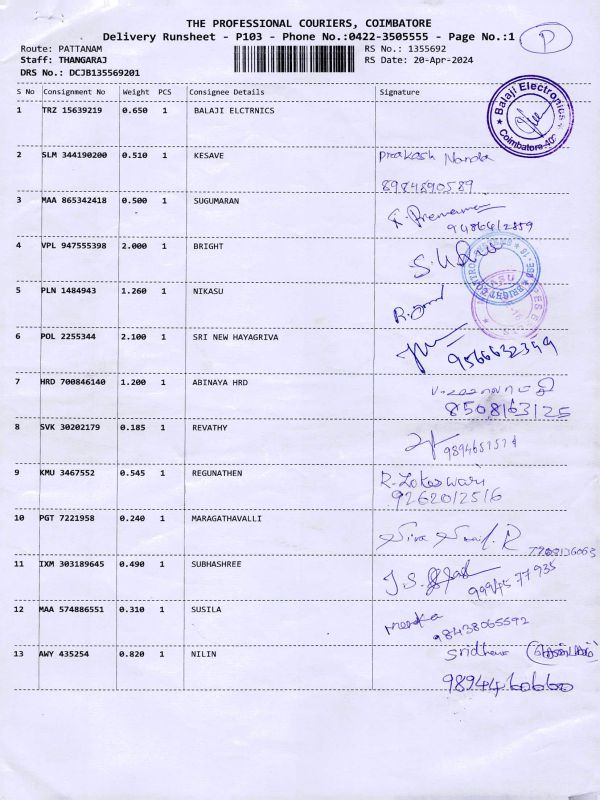 THE PROFESSIONAL COURIERS, COIMBATORE
Delivery Runsheet - P103 - Phone No.:0422-3505555 - Page No.:1 P
Route: PATTANAM RS No.: 1355692
Staff: THANGARAJ RS Date: 20-Apr-2024
DRS No.: DCJB135569201
S No Consignment No Weight PCS Consignee Details Signature
1 TRZ 15639219 0.650 1 BALAJI ELCTRNICS
Balaji Electronics
Coimbatore
2 SLM 344190200 0.510 1 KESAVE Prakash Nanda
8984890589
3 MAA 865342418 0.500 1 SUGUMARAN
4 VPL 947555398 2.000 1 BRIGHT
5 PLN 1484943 1.260 1 NIKASU
6 POL 2255344 2.100 1 SRI NEW HAYAGRIVA
9566632349
7 HRD 700846140 1.200 1 ABINAYA HRD
8508163125
8 SVK 30202179 0.185 1 REVATHY
9 KMU 3467552 0.545 1 REGUNATHEN R. Lokeswari
9262012516
10 PGT 7221958 0.240 1 MARAGATHAVALLI
11 IXM 303189645 0.490 1 SUBHASHREE
9994577935
12 MAA 574886551 0.310 1 SUSILA
98438065592
13 AWY 435254 0.820 1 NILIN Sridhar
9894460660